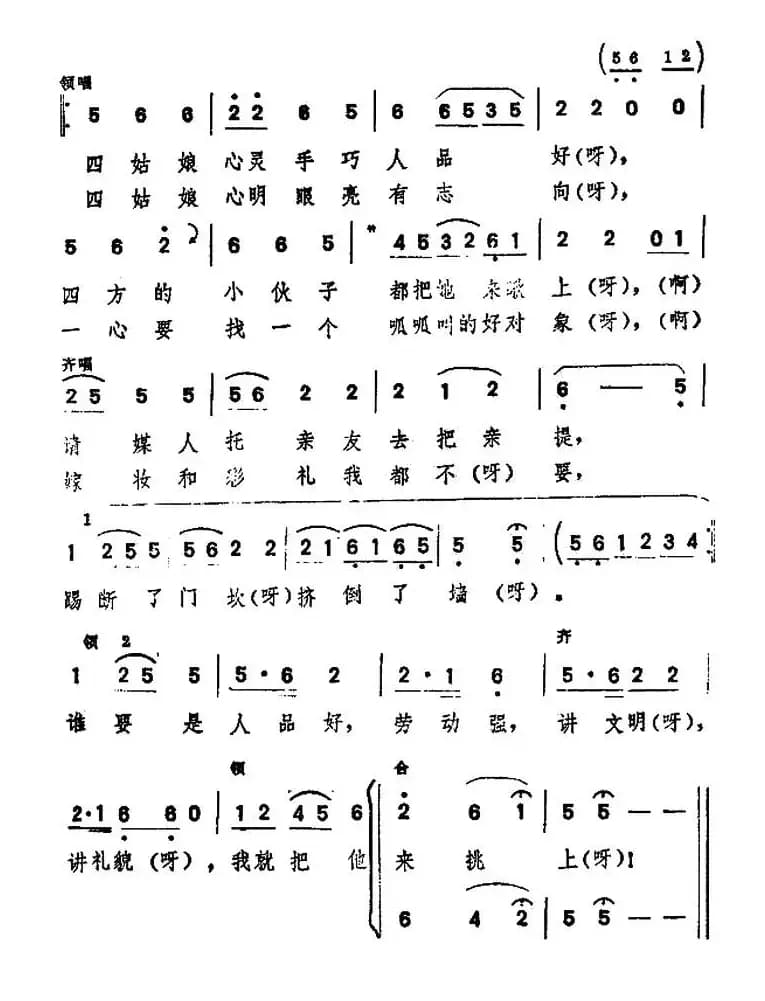 (56 12)
领唱
5 6 6 | 22 6 5 | 6 6535 | 2 2 0 0
四姑娘心灵手巧人品好(呀),
四姑娘心明眼亮有志向(呀),
5 6 2 | 6 6 5 | 453261 | 2 2 01
四方的小伙子都把她来瞅上(呀),(啊)
一心要找一个呱呱叫的好对象(呀),(啊)
齐唱
25 5 5 | 56 2 2 | 2 1 2 | 6 — 5
请媒人托亲友去把亲提,
嫁妆和彩礼我都不(呀)要,
1
1 255 | 56 2 2 | 21 61 65 | 5 5 (561234
踢断了门坎(呀)挤倒了墙(呀)。
领 2 齐
1 25 5 | 5·6 2 | 2·1 6 | 5·6 2 2
谁要是人品好,劳动强,讲文明(呀),
领 合
2·1 6 60 | 12 45 6 | 2 6 1 | 5 5 — —
讲礼貌(呀),我就把他来挑上(呀)!
6 4 2 | 5 5 — —